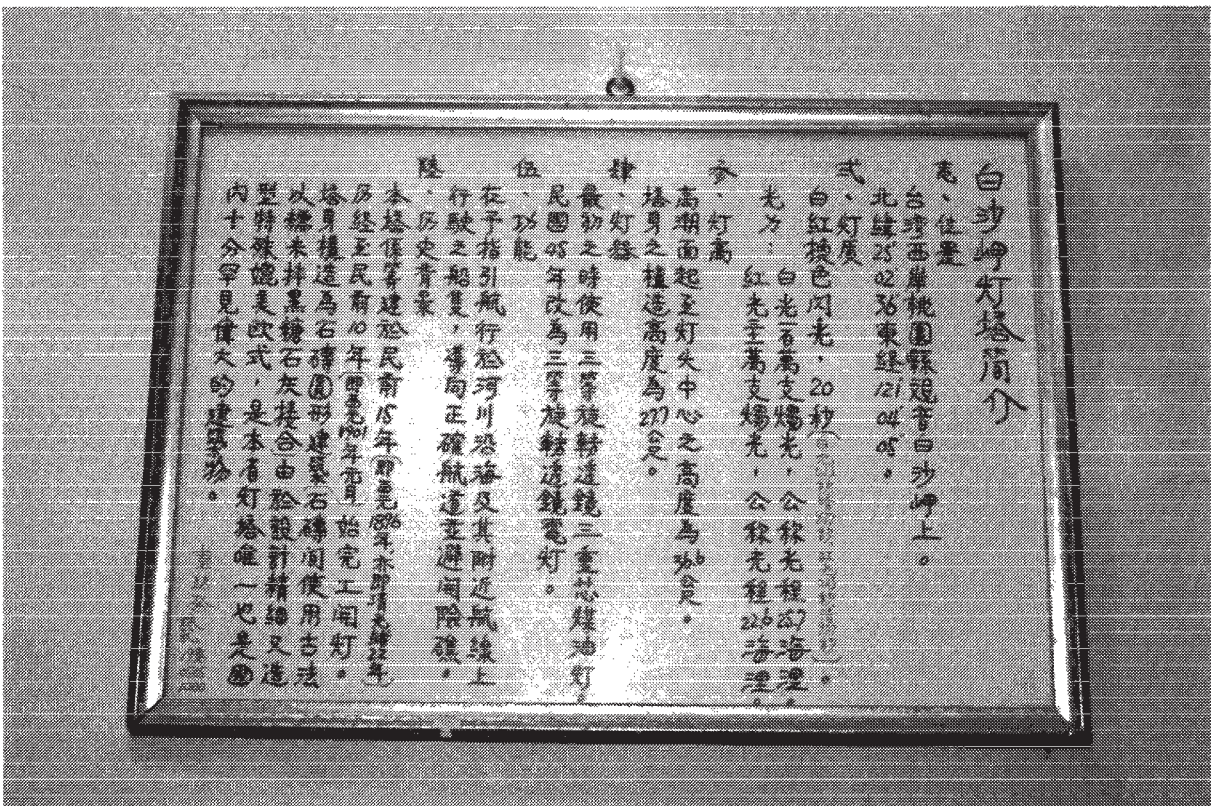 白沙岬灯塔简介
壱、位置
台湾西岸桃園縣观音白沙岬上。
北緯25°02′36″東経121°04′05″。
弍、灯质
白红換色闪光，20秒
光力：白光一百萬支燭光，公称光程25.7海浬。
红光壹萬支燭光，公称光程22.6海浬。
参、灯高
高潮面起至灯火中心之高度為
塔身之楂造高度為27.7公尺。
肆、灯器
最初之時使用三等旋轉透鏡三重芯煤油灯。
民國05年改為三等旋轉透鏡電灯。
伍、功能
在予指引航行於河川沿海及其附近航線上
行駛之船隻，導向正確航道並避闭险礁。
陸、历史背景
本塔係筹建於民前15年(即西元1896年亦即清光緒22年)
历経至民前10年(即西元1901年元月)始完工闭灯。
塔身楂造為石磚圓形建築石磚间使用古法
以糯米拌黑糖石灰接合由於設計精細又造
型特殊媲美欧式，是本省灯塔唯一也是國
内十分罕見偉大的建築物。